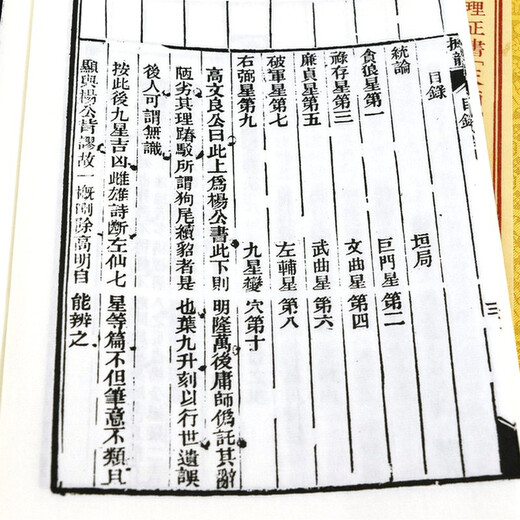 理正書
撼龍
目錄
三
目錄
統論 垣局
貪狼星第一 巨門星第二
祿存星第三 文曲星第四
廉貞星第五 武曲星第六
破軍星第七 左輔星第八
右弼星第九 九星變穴第十
高文良公曰此上爲楊公書此下則明隆萬後庸師僞託其辭
陋劣其理踳駁所謂狗尾續貂者是也葉九升刻以行世遺誤
後人可謂無識
按此後九星吉凶雌雄詩斷左仙七星等篇不但筆意不類且
顯與楊公背謬故一概刪除高明自能辨之